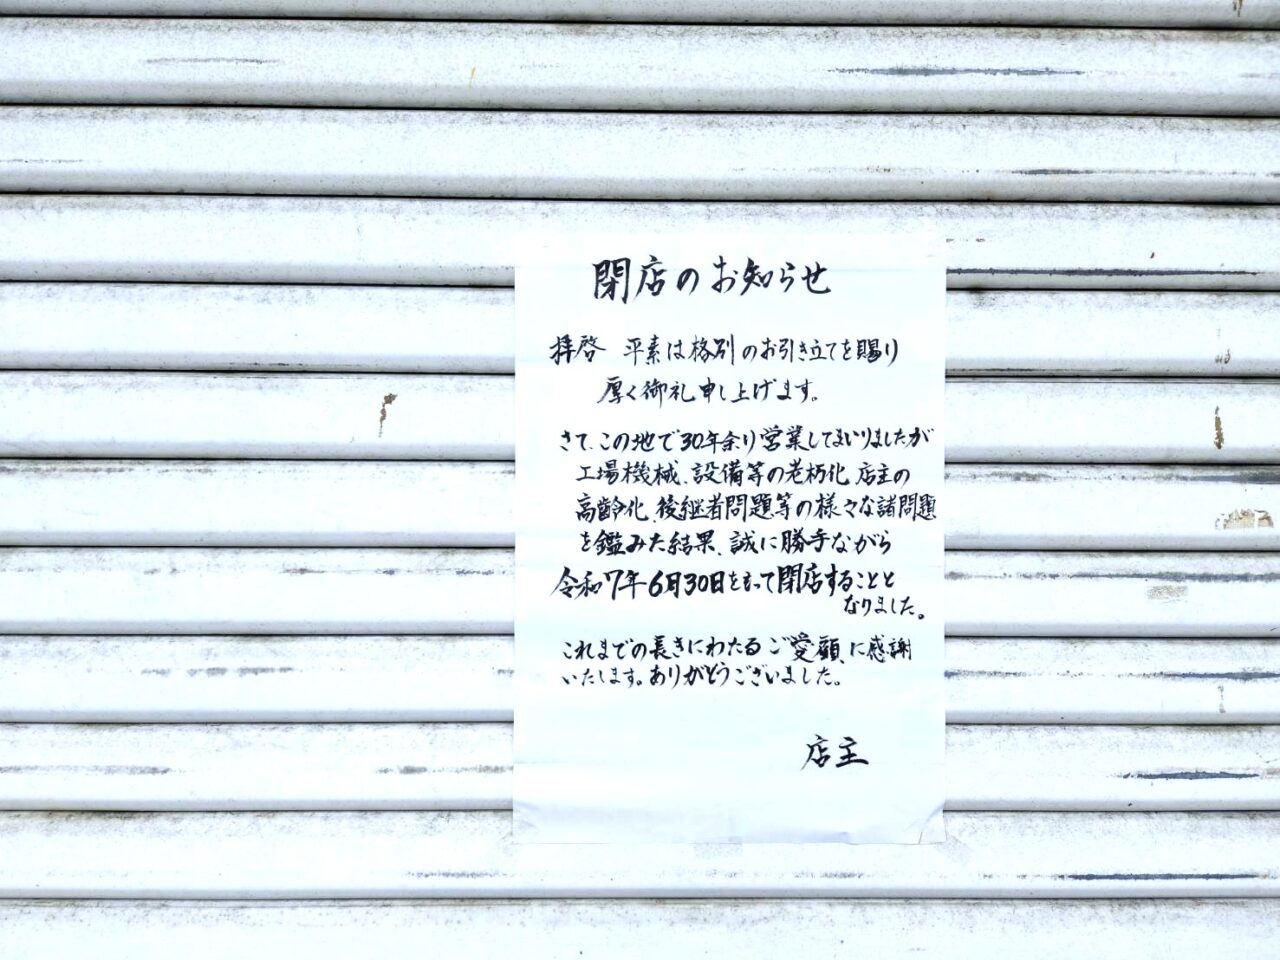 閉店のお知らせ
拝啓 平素は格別のお引き立てを賜り
厚く御礼申し上げます。
さて、この地で30年余り営業してまいりましたが
工場機械、設備等の老朽化、店主の
高齢化、後継者問題等の様々な諸問題
を鑑みた結果、誠に勝手ながら
令和7年6月30日をもって閉店することと
なりました。
これまでの長きにわたるご愛顧に感謝
いたします。ありがとうございました。
店主